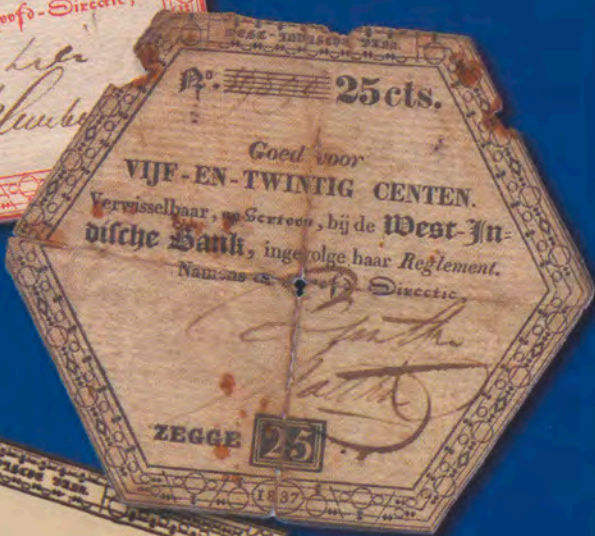 oofd-Directie,
WEST-INDISCHE BANK.
No. 25 cts.
Goed voor
VIJF-EN-TWINTIG CENTEN.
Verwisselbaar, op vertoon, bij de West-In=
dische Bank, ingevolge haar Reglement.
Namens de Hoofd-Directie,
ZEGGE 25
1837